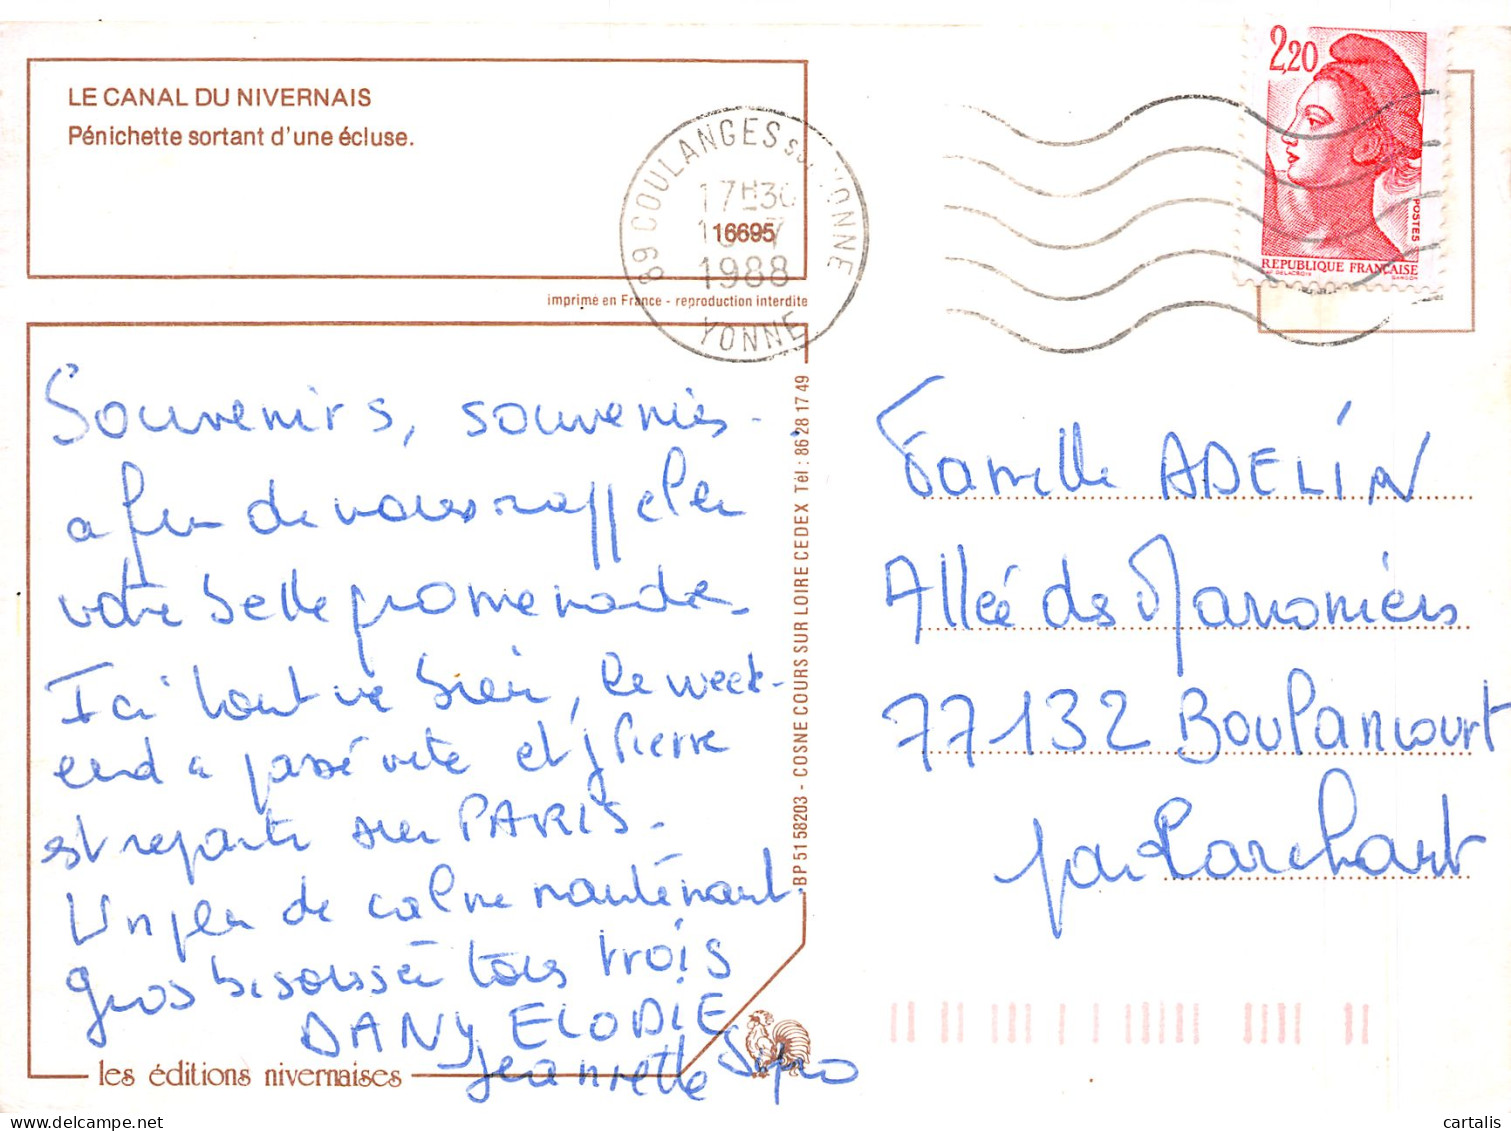 LE CANAL DU NIVERNAIS
Pénichette sortant d'une écluse.
imprimé en France - reproduction interdite
89 COULANGES sur YONNE
17H30
16695
1988
YONNE
2,20
POSTES
REPUBLIQUE FRANÇAISE
DELACROIX
GANDON
Souvenirs, souvenirs -
afin de nous rappeler
votre belle promenade.
Ici tout va bien, le week-
end a passé vite et Pierre
est reparti sur PARIS.
Un peu de calme maintenant.
gros bisous à tous trois
DANY ELODIE
Jeannette
les éditions nivernaises
BP 51 58203 - COSNE COURS SUR LOIRE CEDEX Tél : 86 28 17 49
Famille ADELIN
Allée des Maronniers
77132 Boulancourt
par Larchant
www.delcampe.net
cartalis